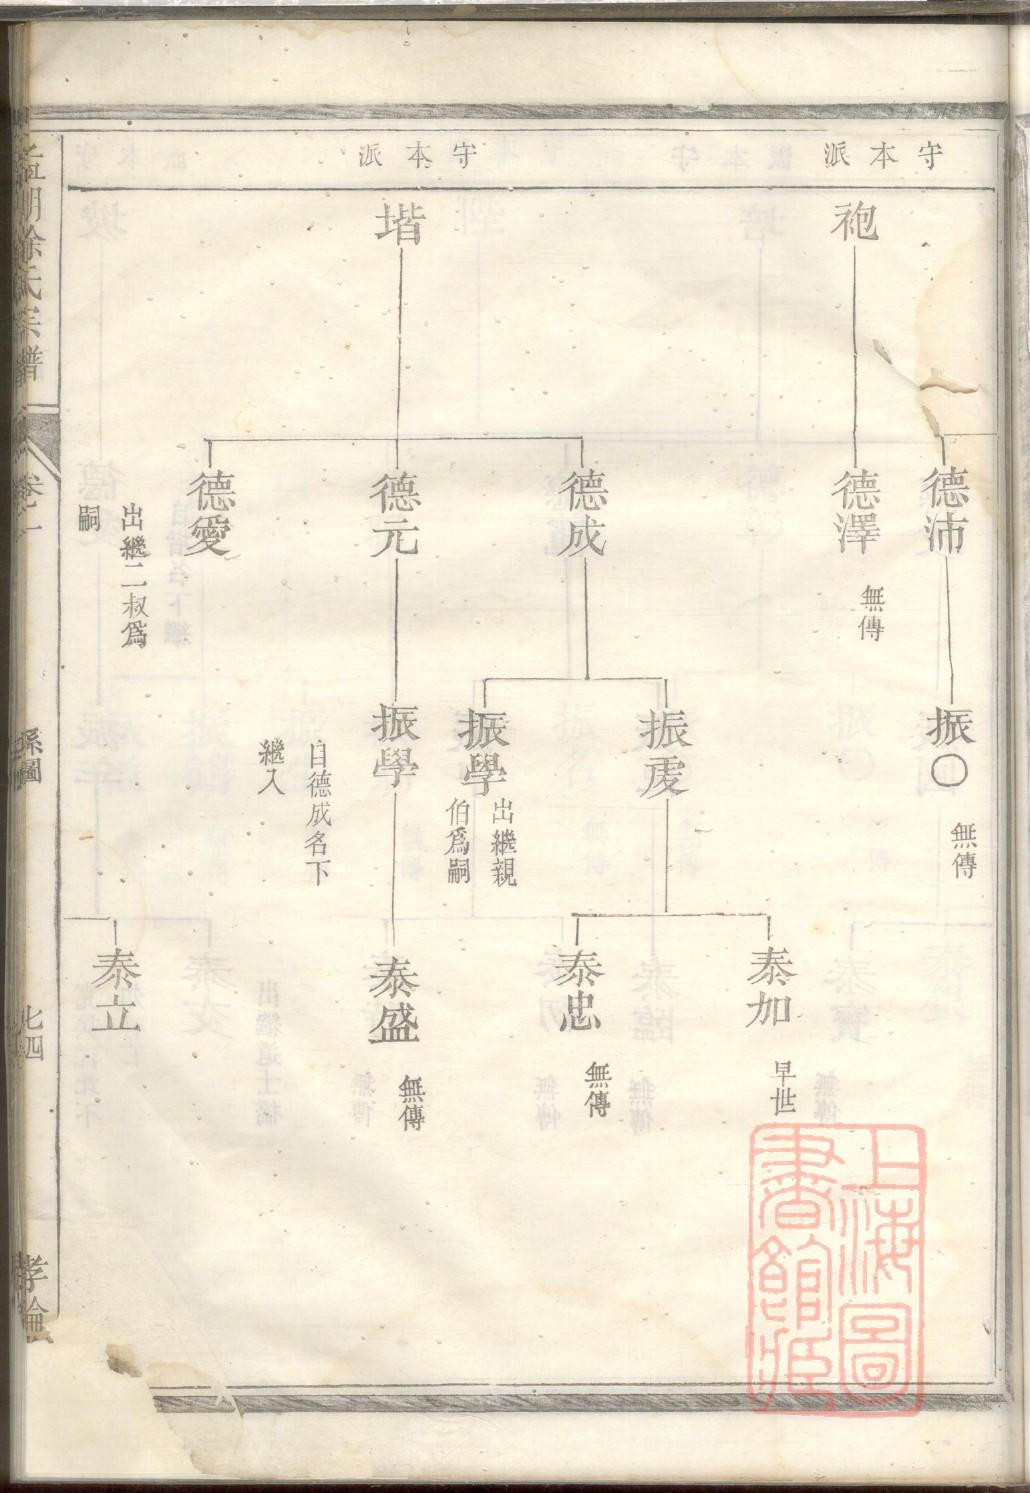 守本派
袍
德沛
德澤
無傳
振〇
無傳
守本派
堦
德成
德元
德愛
出繼二叔爲
嗣
振虔
振學
出繼親
伯爲嗣
振學
自德成名下
繼入
泰加
早世
泰忠
無傳
泰盛
無傳
泰立
徐氏宗譜
卷二
系圖
七四
孝綸
上海圖
書館藏